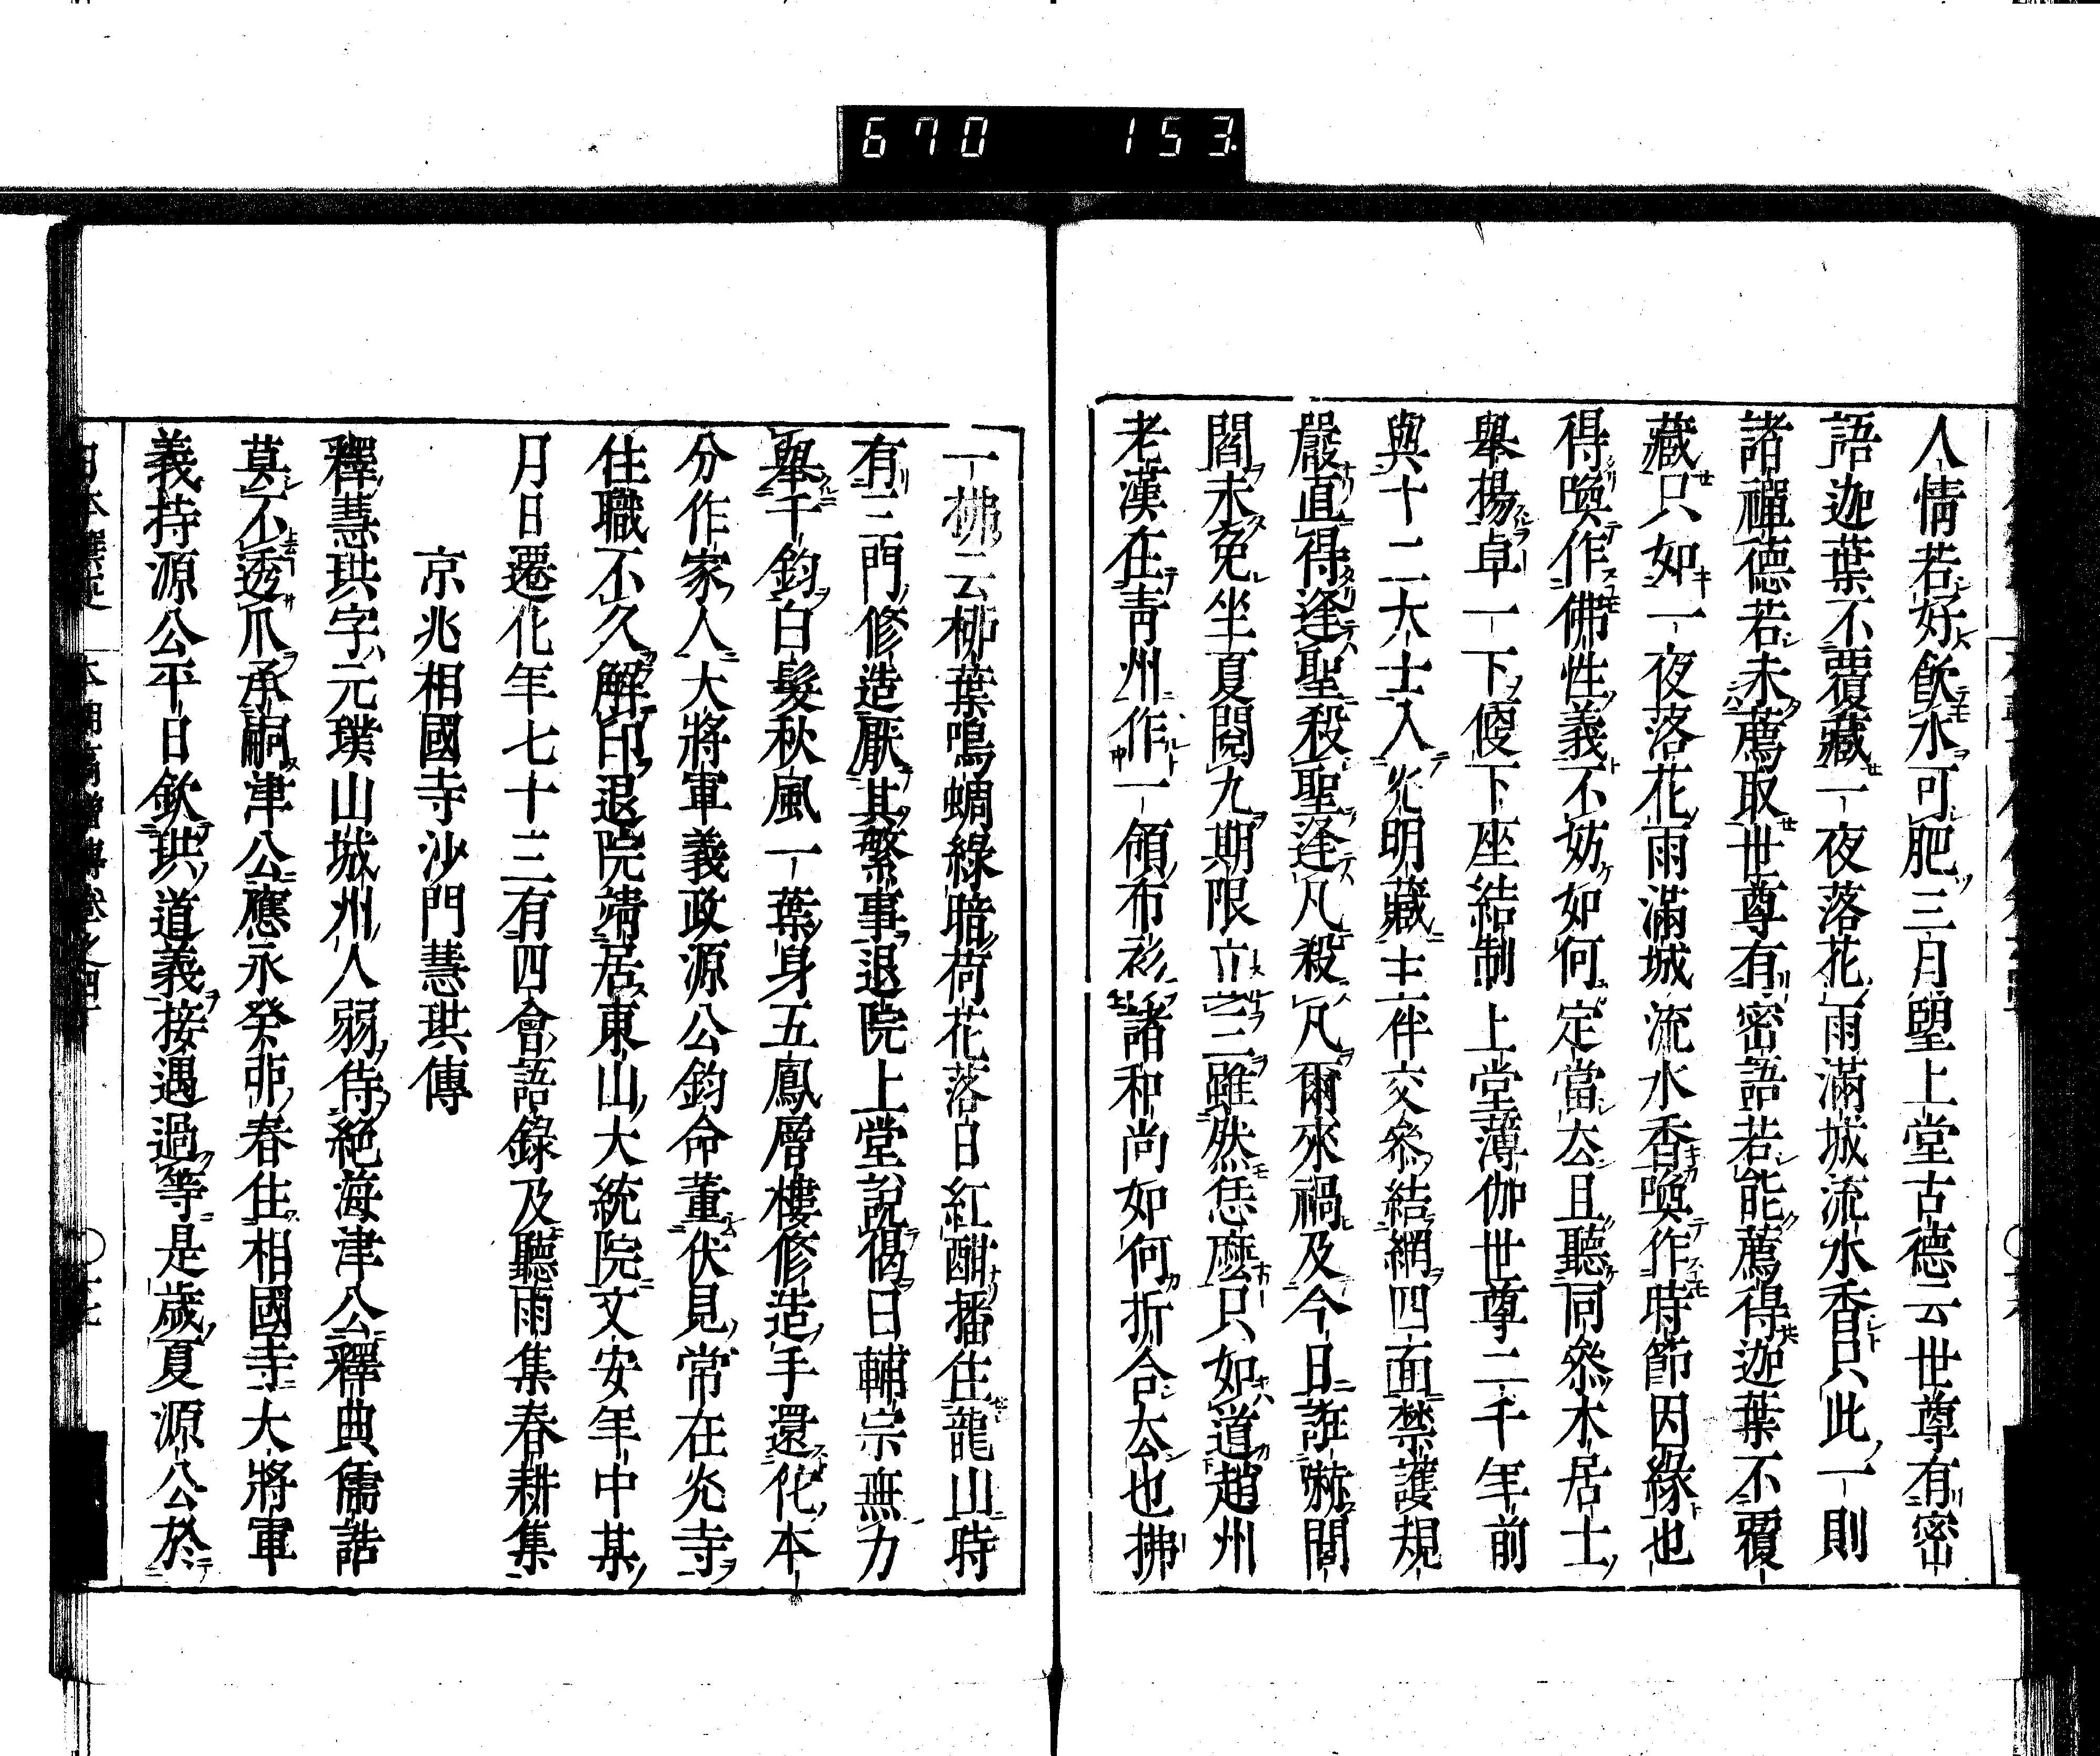 670 153
人情若好飲水可肥三月朢上堂古德云世尊有密
語迦葉不覆藏一夜落花雨滿城流水香只此一則
諸禪德若未薦取世尊有密語若能薦得迦葉不覆
藏只如一夜落花雨滿城流水香喚作時節因緣也
得喚作佛性義不妨如何定當厺且聽同叅木居士
舉揚卓一下便下座結制上堂薄伽世尊二千年前
與十二大士入光明藏主伴交叅結網四面禁護規
嚴直得逢聖殺聖逢凡殺凡爾來禍及今日誑嚇閻
閻未免坐夏閱九期限立三雖然恁麽只如道趙州
老漢在青州作一領布衫諸和尚如何折合厺也拂
一拂云柳葉鳴蜩綠暗荷花落日紅酣播住龍山時
有三門修造厭其繁事退院上堂說偈曰輔宗無力
舉千鈞白髮秋風一葉身五鳳層樓修造手還他本
分作家人大將軍義政源公鈞命董伏見常在光寺
住職不久解印退院歸居東山大統院文安年中某
月日遷化年七十三有四會語錄及聽雨集春耕集
京兆相國寺沙門慧珙傳
釋慧珙字元璞山城州人弱侍絕海津公釋典儒誥
莫不透爪承嗣津公應永癸卯春住相國寺大將軍
義持源公平日欽珙道義接遇過等是歲夏源公於